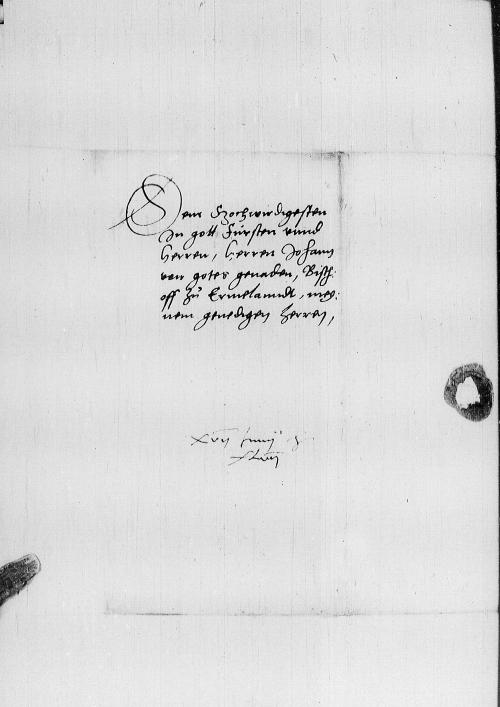 Dem Hochwirdigesten
In gott Fürsten vnnd
Herren, Herren Johann
von gotes genaden, Bisch:
off zu Ermelanndt, mey:
nem genedigen Herren,
xvij